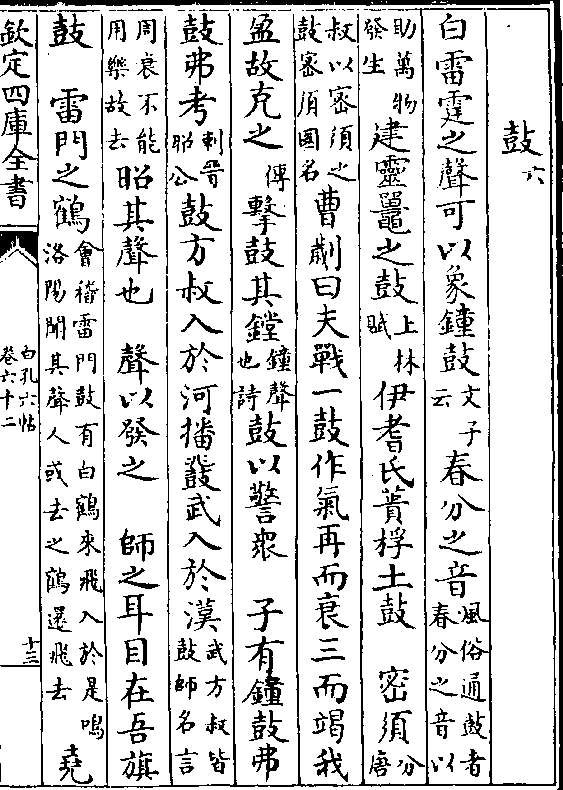 鼓六
白雷霆之聲可以象鐘鼓文子云春分之音風俗通鼓者春分之音以
助萬物發生建靈鼉之鼓上林賦伊耆氏蕢桴土鼓密須分唐
叔以密須之鼓密須國名曹劌曰夫戰一鼓作氣再而衰三而竭我
盈故克之傳擊鼓其鏜鐘聲也詩鼓以警衆子有鐘鼓弗
鼓弗考刺晉昭公鼓方叔入於河播鼗武入於漢武方叔皆鼓師名言
周衰不能用樂故去昭其聲也聲以發之師之耳目在吾旗
鼓雷門之鶴會稽雷門鼓有白鶴來飛入於是鳴洛陽聞其聲人或去之鶴還飛去堯
欽定四庫全書
白孔六帖
卷六十二
十三